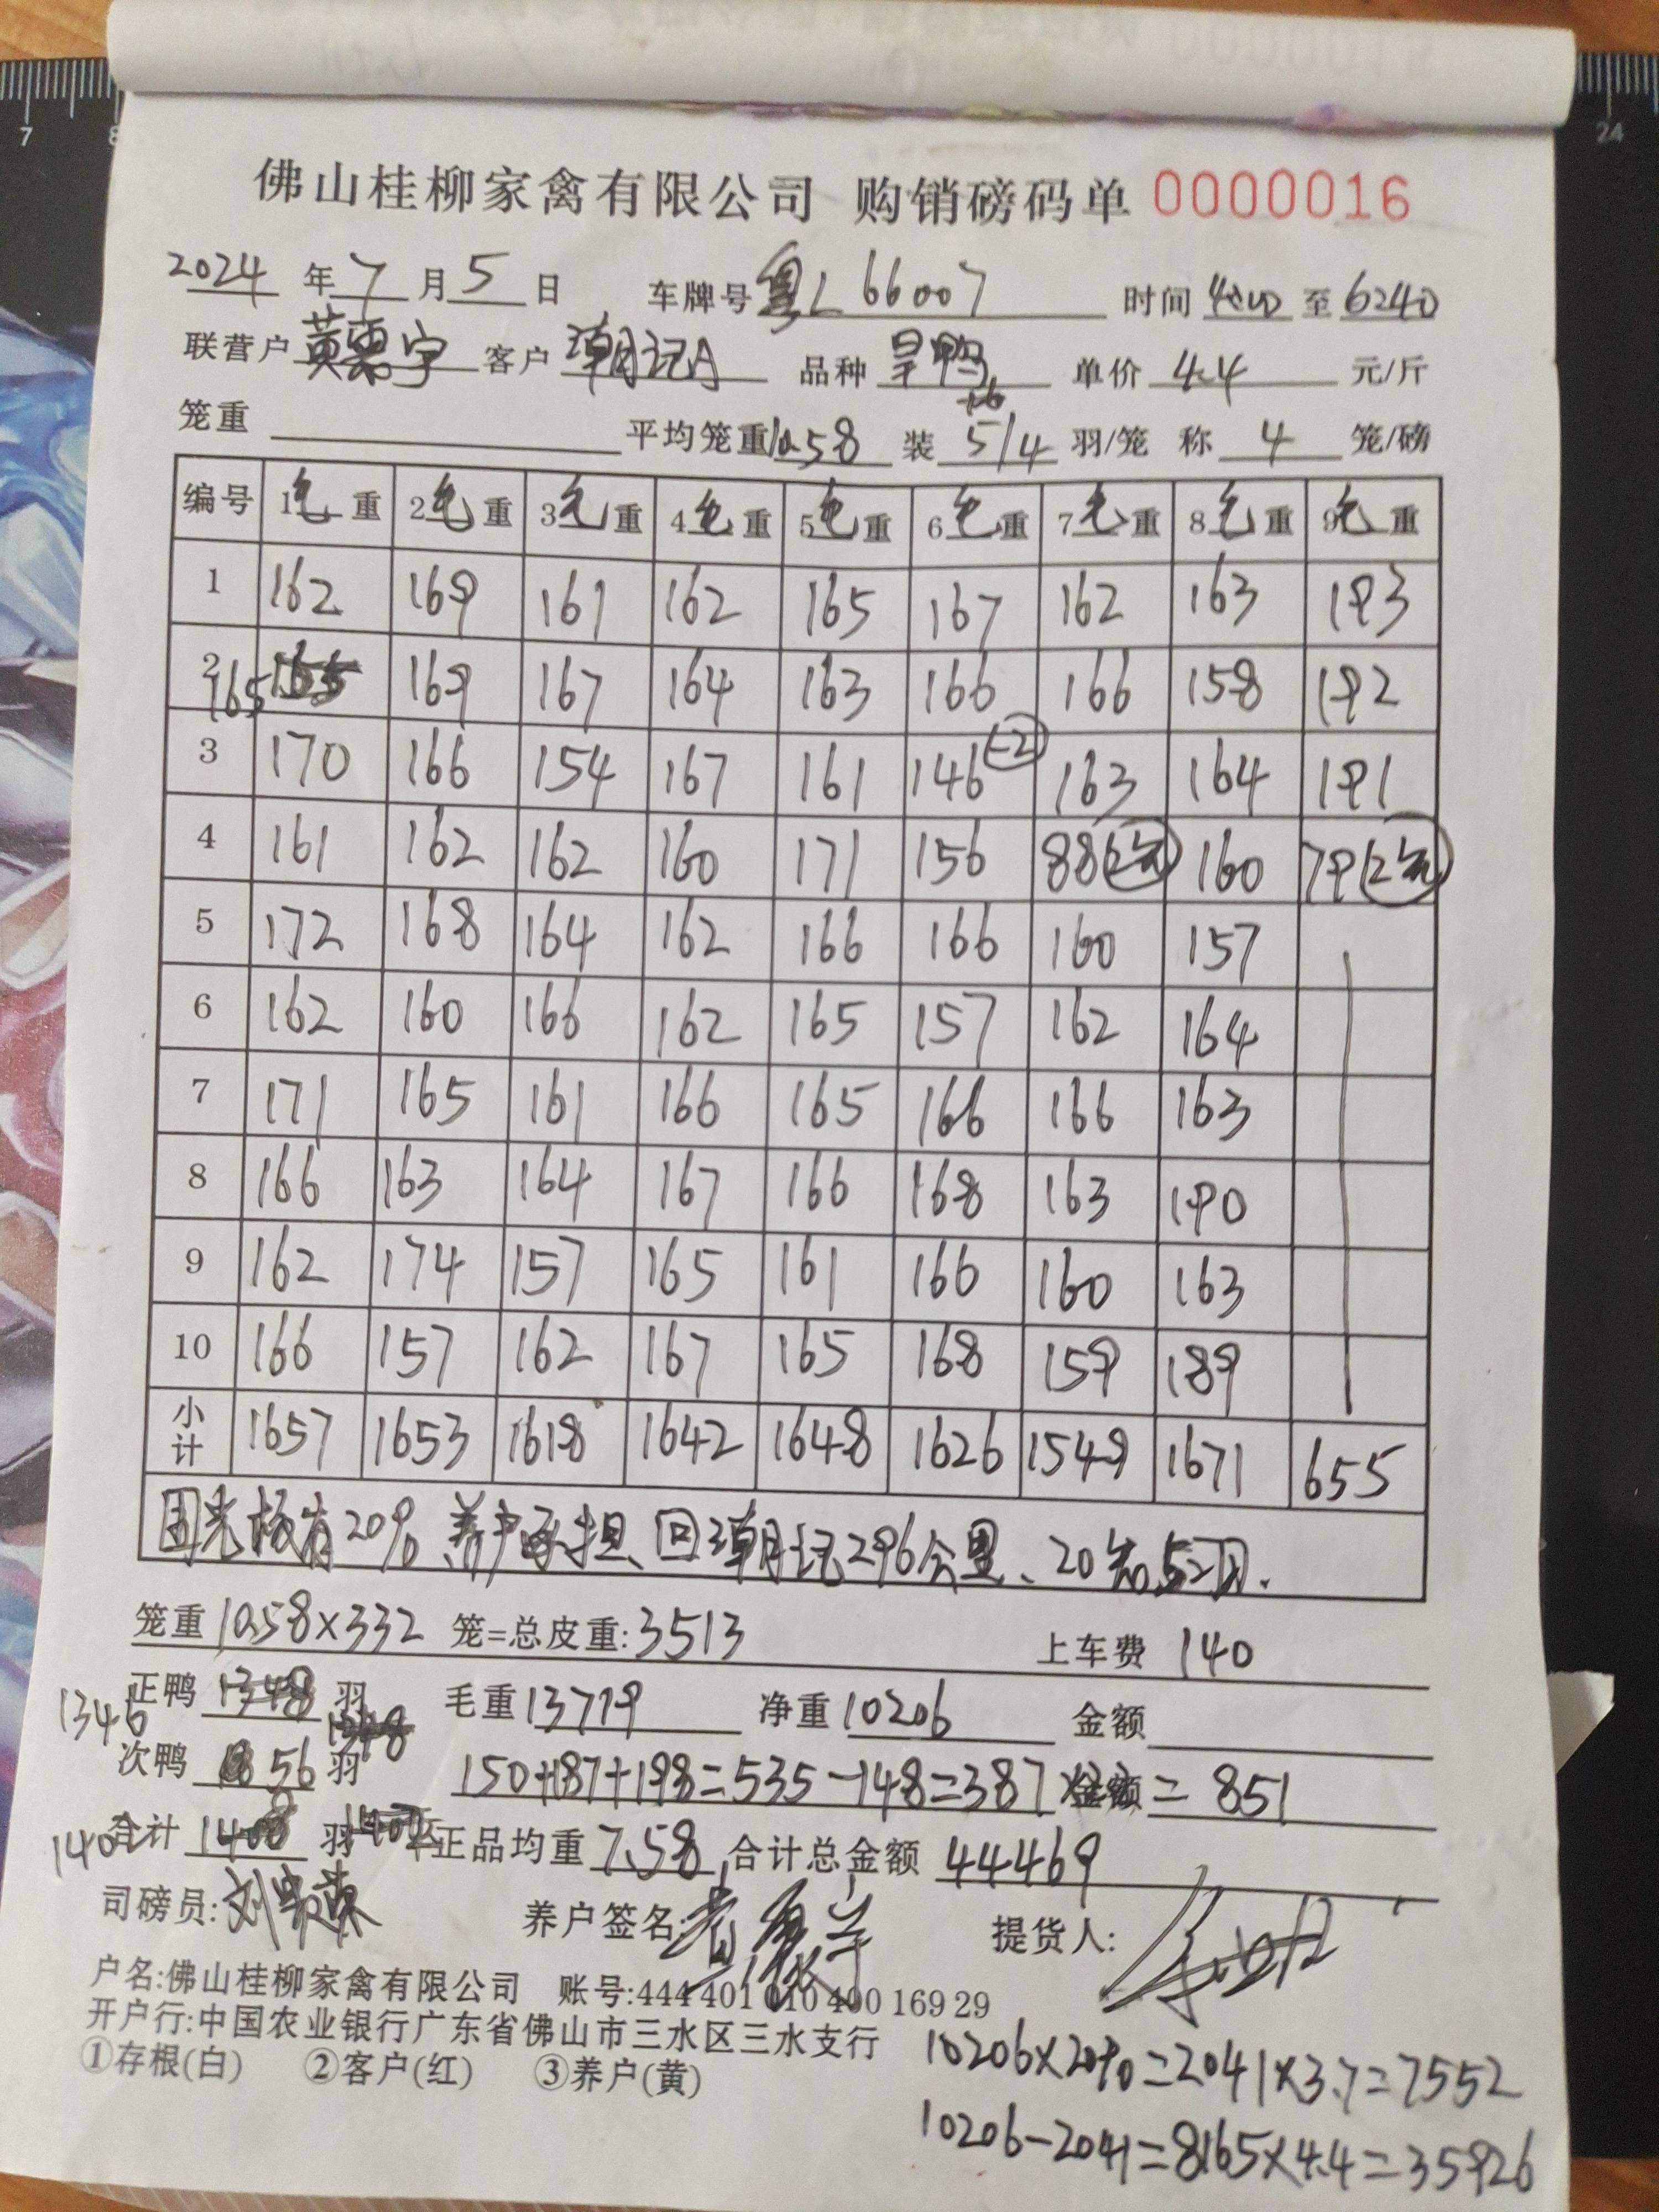 佛山桂柳家禽有限公司 购销磅码单 0000016
2024 年 7 月 5 日 车牌号 粤L 66007 时间 至 6240
联营户 黄 宇 客户 潮记 品种 旱鸭 单价 4.4 元/斤
笼重 平均笼重 10.58 装 5/4 羽/笼 称 4 笼/磅
编号 1毛重 2毛重 3毛重 4毛重 5毛重 6毛重 7毛重 8毛重 9毛重
1 162 169 161 162 165 167 162 163 193
2 165 169 167 164 163 166 166 158 192
3 170 166 154 167 161 146 (-2) 163 164 191
4 161 162 162 160 171 156 88(2 160 79(2
5 172 168 164 162 166 166 160 157
6 162 160 166 162 165 157 162 164
7 171 165 161 166 165 166 166 163
8 166 163 164 167 166 168 163 190
9 162 174 157 165 161 166 160 163
10 166 157 162 167 165 168 159 189
小计 1657 1653 1618 1642 1648 1626 1549 1671 655
20% 养户承担、回潮记296公里、20
笼重 10.58×332 笼=总皮重: 3513 上车费 140
正鸭 1346 羽 毛重 13719 净重 10206 金额
次鸭 56 羽 150+187+198=535-148=387 金额 = 851
合计 1402 羽 正品均重 7.58 合计总金额 44469
司磅员: 刘 养户签名: 提货人:
户名:佛山桂柳家禽有限公司 账号:444 401 010 400 169 29
开户行:中国农业银行广东省佛山市三水区三水支行
①存根(白) ②客户(红) ③养户(黄)
10206×20%=2041×3.7=7552
10206-2041=8165×4.4=35926